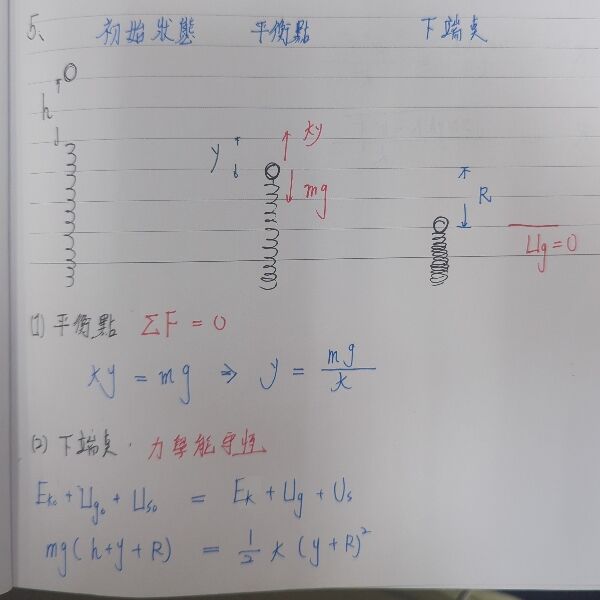 5、 初始狀態 平衡點 下端點
h
y ky
mg
R
Ug=0
(1) 平衡點 ΣF = 0
ky = mg ⇒ y = mg/k
(2) 下端點. 力學能守恆
Ek₀ + Ug₀ + Us₀ = Ek + Ug + Us
mg(h+y+R) = 1/2 k (y+R)²